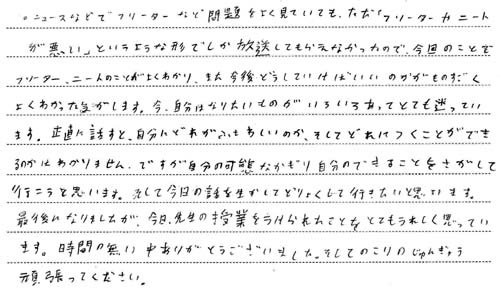 。ニュースなどでフリーターなど問題をよく見ていても、ただ「フリーターカニート
が悪い」というような形でしか放送してもらえなかったので、今回のことで
フリーター、ニートのことがよくわかり、また今後どうしていけばいいのかがものすごく
よくわかった気がします。今、自分はなりたいものがいろいろあってとても迷ってい
ます。正直に話すと、自分にどれがふさわしいのか、そしてどれにつくことができ
るのかはわかりません。ですが自分の可態なかぎり自分のできることをさがして
行こうと思います。そして今日の話を生かしてどりょくして行きたいと思っています。
最後になりましたが、今日、先生の授業をうけられたことをとてもうれしく思ってい
ます。時間の無い中ありがとうございました。そしてのこりのじゅんぎょう
頑張ってください。